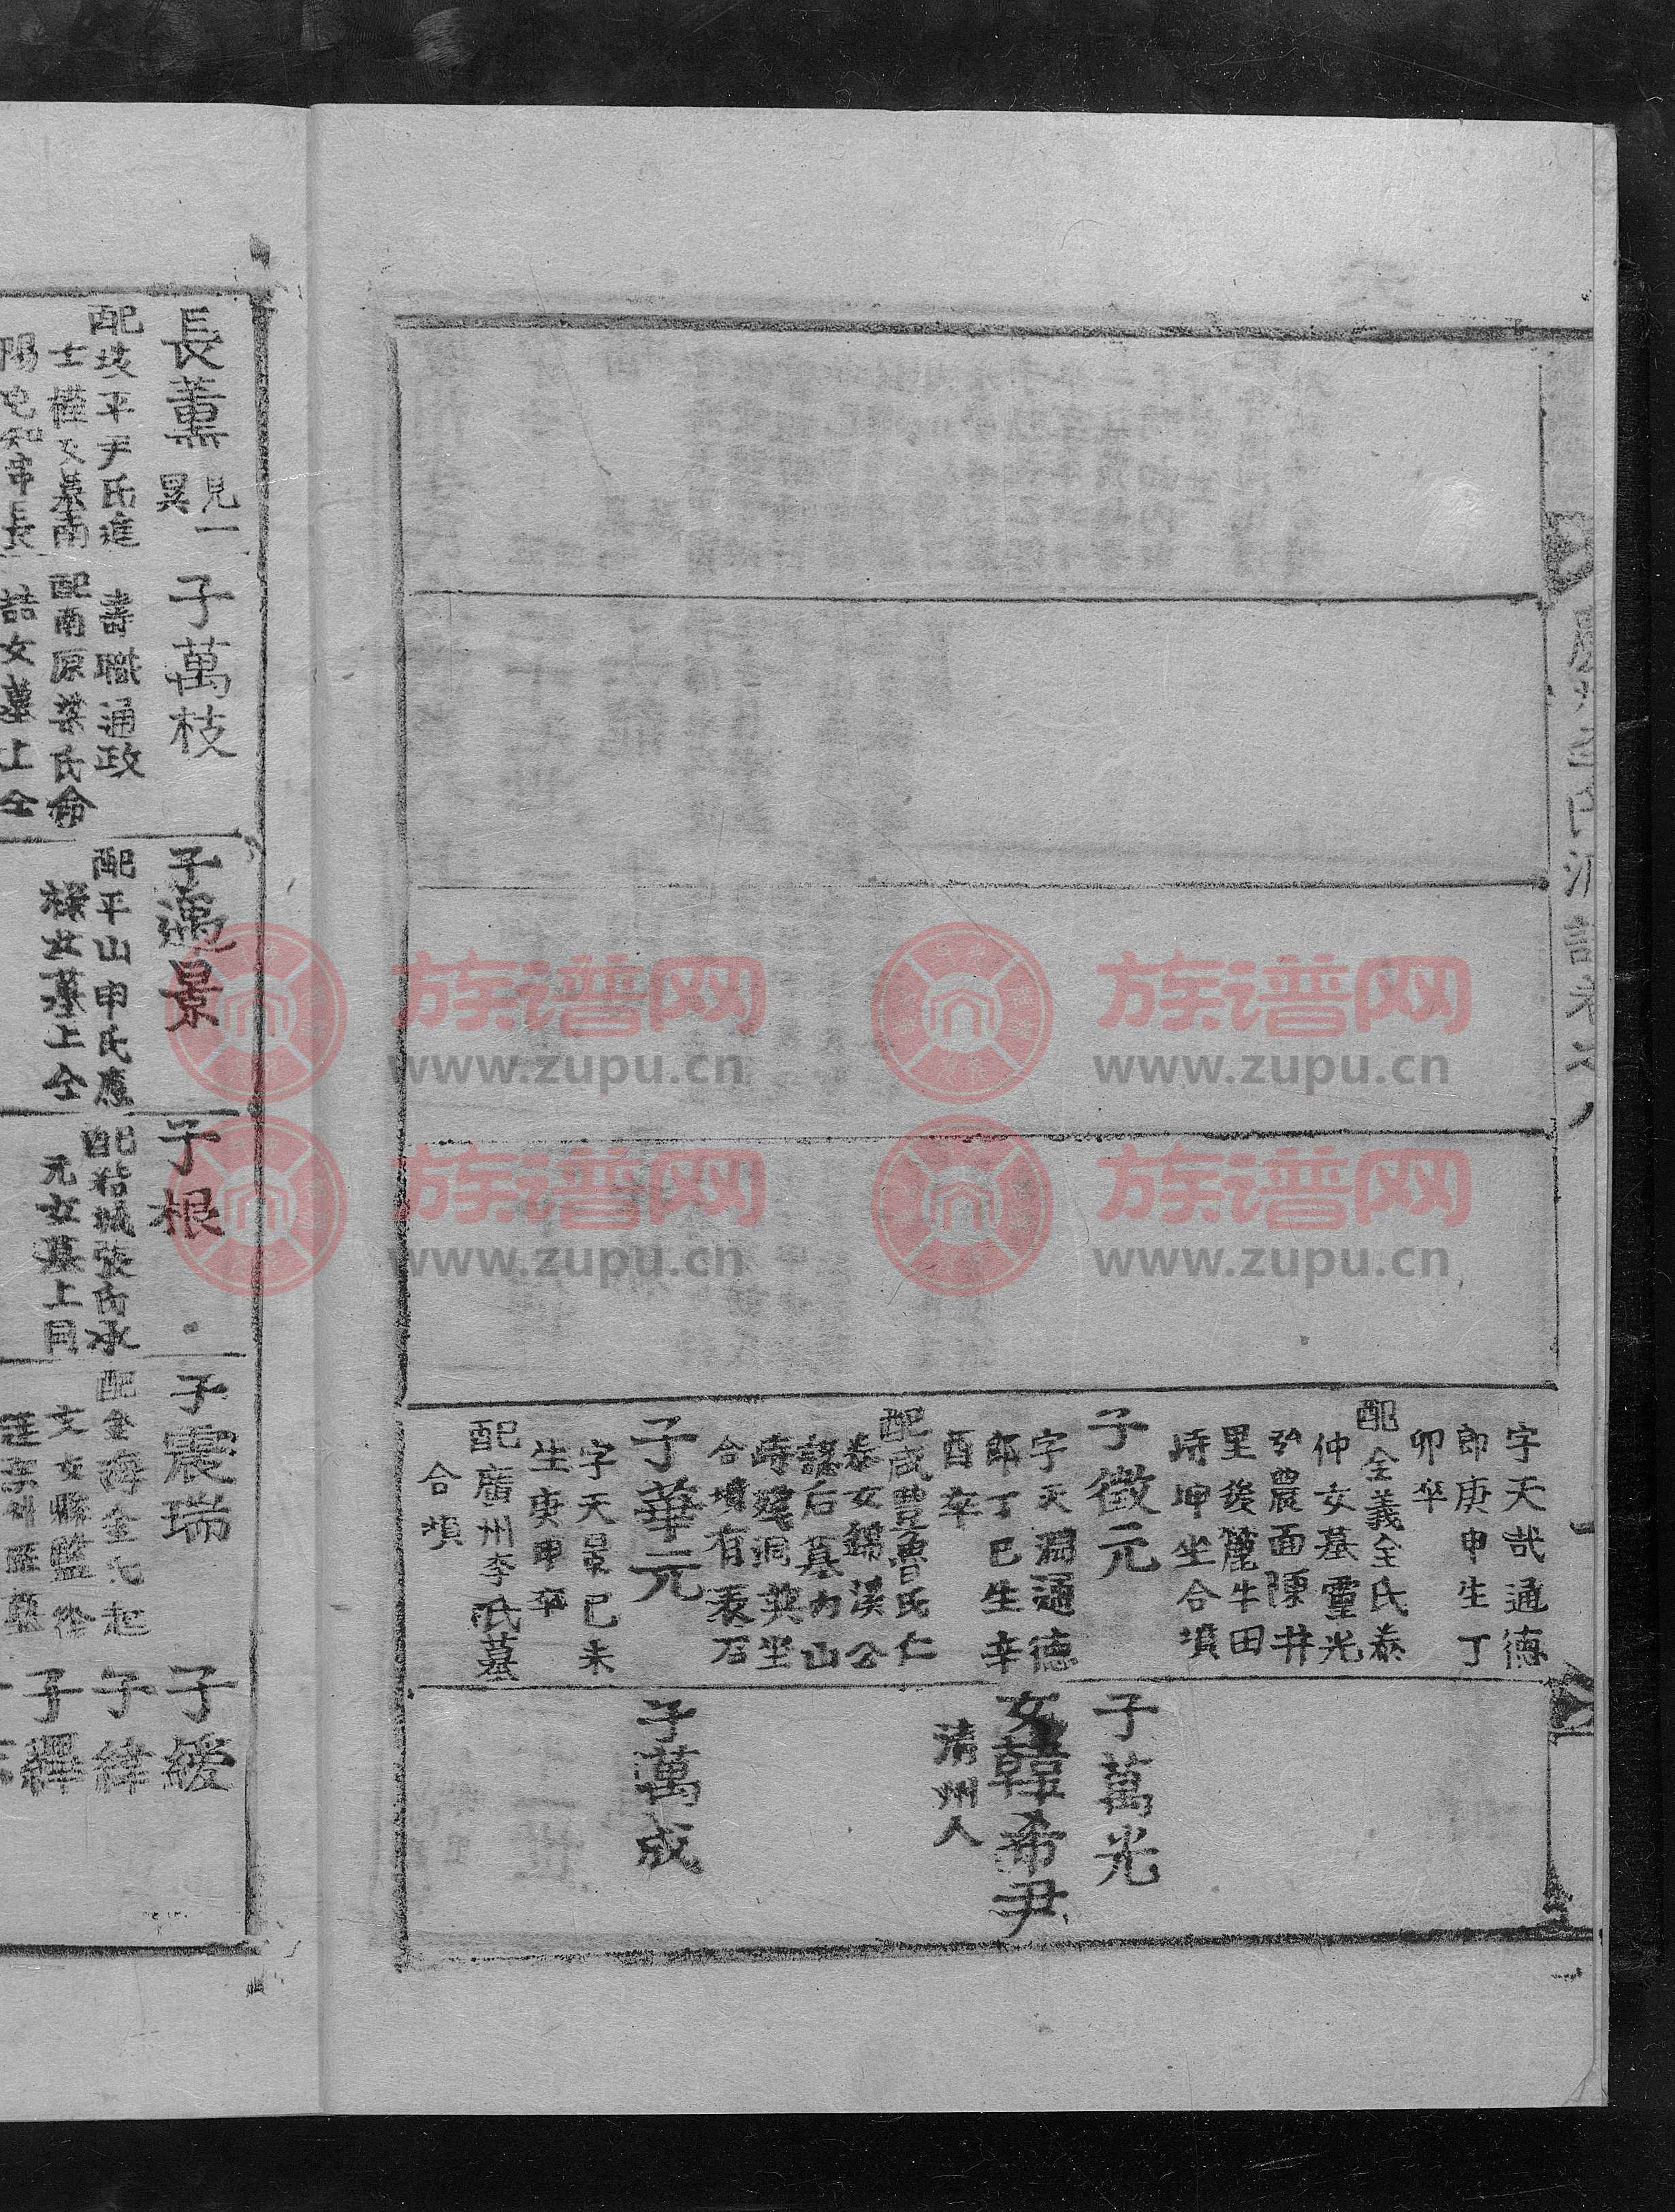 字天哉通德
郎庚申生丁
卯卒
配全義全氏泰
仲女墓靈光
弘農面陳井
里後麓牛田
峙坤坐合墳
子徵元
字天潤通德
郎丁巳生辛
酉卒
配咸豊魯氏仁
泰女錦溪公
諡后墓力山
峙洞巽坐
合墳有表石
子華元
字天昱己未
生庚申卒
配廣州李氏墓
合墳
子萬光
女韓希尹
清州人
子萬成
長薰 見一
配坡平尹氏進
士權女墓南
子萬枝
壽職通政
配南原梁氏命
喆女墓上仝
子邁景
配平山申氏應
女墓上仝
子根
配 城張氏承
元女墓上同
子震瑞
配金海金氏起
文女縣監
子緩
子緯
子繹
族谱网
www.zupu.cn
族谱网
www.zupu.cn
族谱网
www.zupu.cn
族谱网
www.zupu.cn